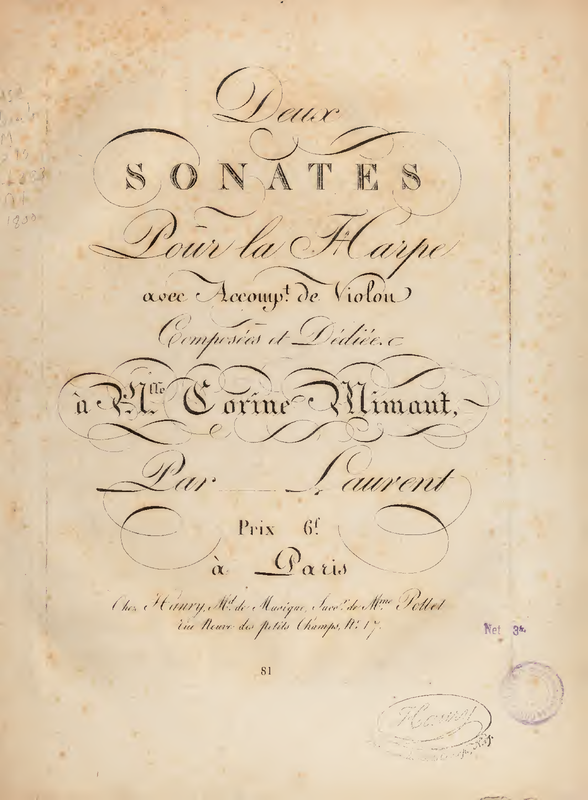 Deux
SONATES
Pour la Harpe
avec Accomp.t de Violon
Composées et Dédiées
à M.lle Corine Mimaut,
Par Laurent
Prix 6f
à Paris
Chez Hanry, M.d de Musique, Succ.r de M.me Pollet
Rue Neuve des petits Champs, N.o 17
Net 3
81
Hanry